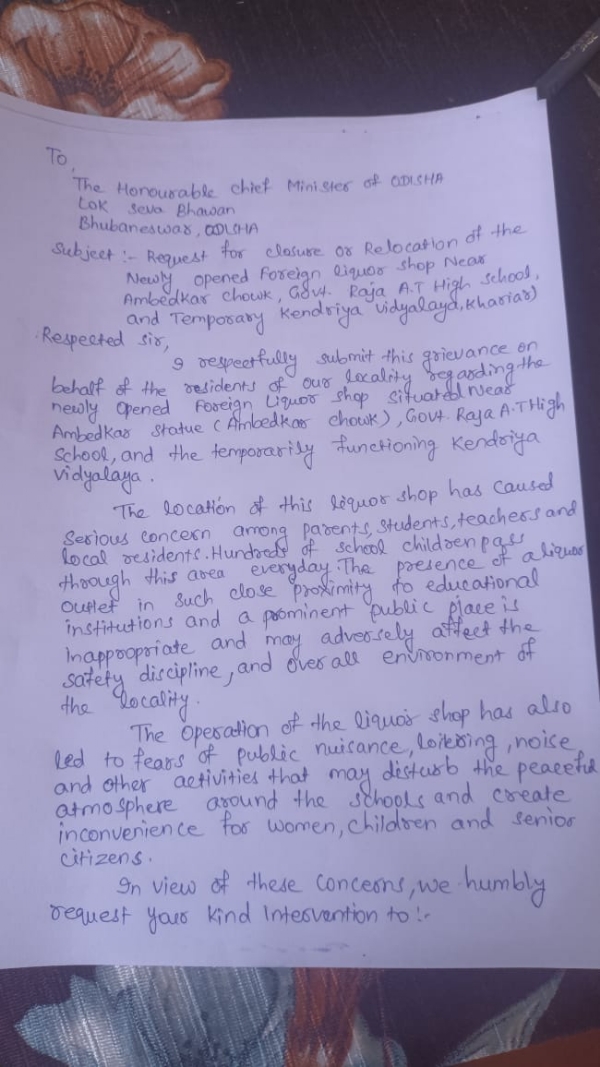 To,
The Honourable chief Minister of ODISHA
Lok Seva Bhawan
Bhubaneswar, ODISHA
Subject :- Request for closure or Relocation of the
Newly opened Foreign liquor shop Near
Ambedkar chowk, Govt. Raja A.T High School,
and Temporary Kendriya vidyalaya, Khariar)
Respected sir,
I respectfully submit this grievance on
behalf of the residents of our locality regarding the
newly opened Foreign Liquor shop situated Near
Ambedkar Statue (Ambedkar chowk), Govt. Raja A.T High
School, and the temporarily functioning Kendriya
vidyalaya.
The location of this liquor shop has caused
serious concern among parents, students, teachers and
local residents. Hundreds of school children pass
through this area everyday. The presence of a liquor
outlet in such close proximity to educational
institutions and a prominent public place is
inappropriate and may adversely affect the
safety discipline, and overall environment of
the locality.
The operation of the liquor shop has also
led to fears of public nuisance, loitering, noise,
and other activities that may disturb the peaceful
atmosphere around the schools and create
inconvenience for women, children and senior
citizens.
In view of these concerns, we humbly
request your kind Intervention to :-